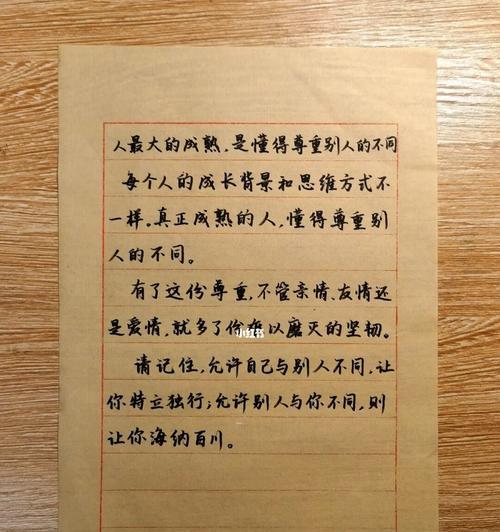 人最大的成熟，是懂得尊重别人的不同
每个人的成长背景和思维方式不
一样。真正成熟的人，懂得尊重别
人的不同。
有了这份尊重，不管亲情、友情还
是爱情，就多了份难以磨灭的坚韧。
小红书
请记住，允许自己与别人不同，让
你特立独行；允许别人与你不同，则
让你海纳百川。